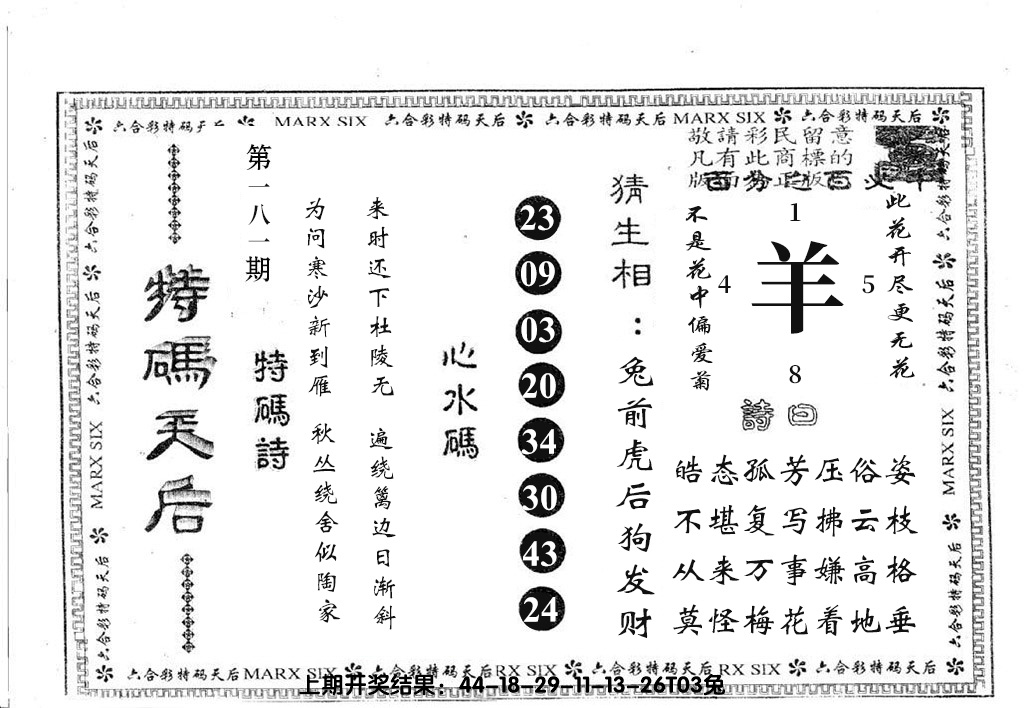 六合彩特码天后 MARX SIX 六合彩特码天后 六合彩特码天后 MARX SIX 六合彩特码天后
敬請彩民留意
凡有此商標的
版
百分之百
此花开尽更无花
1
4 羊 5
8
不是花中偏爱菊
詩曰
姿枝格垂
俗云高地
压拂嫌着
芳写事花
孤复万梅
态堪来怪
皓不从莫
猜生相：兔前虎后狗发财
23
09
03
20
34
30
43
24
心水碼
来时还下杜陵无 遍绕篱边日渐斜
为问寒沙新到雁 秋丛绕舍似陶家
特碼詩
第一八一期
特碼天后
六合彩特码天后 六合彩特码天后 MARX SIX 六合彩特码天后
六合彩特码天后 六合彩特码天后 MARX SIX 六合彩特码天后
六合彩特码天后 MARX SIX 六合彩特码天后 RX SIX 六合彩特码天后 RX SIX 六合彩特码天后
上期开奖结果：44-18-29-11-13-26T03兔